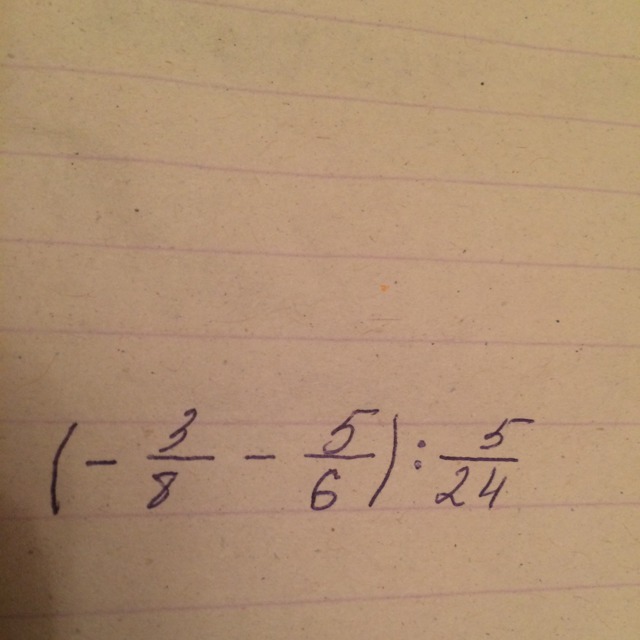 (- 3/8 - 5/6) : 5/24